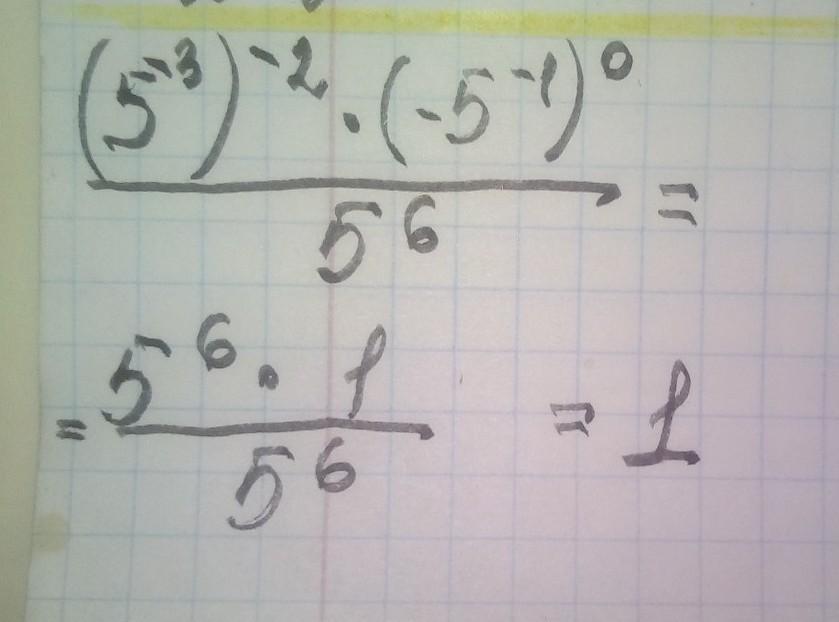 (5⁻³)⁻² · (-5⁻¹)⁰
5⁶ =
= 5⁶ · 1 = 1
5⁶